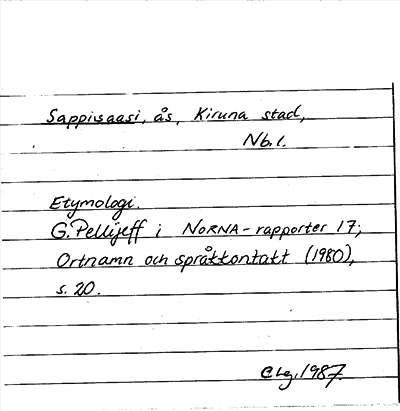 Sappisaasi, ås, Kiruna stad,
Nb.l.
Etymologi.
G. Pellijeff i NORNA-rapporter 17;
Ortnamn och språkkontakt (1980),
s. 20.
CLg, 1987.